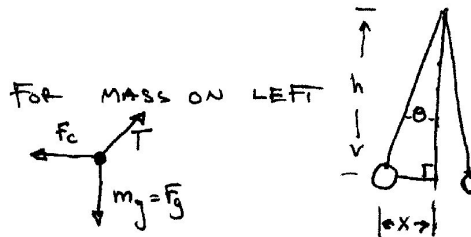 FOR MASS ON LEFT
Fc
T
mg = Fg
h
θ
x